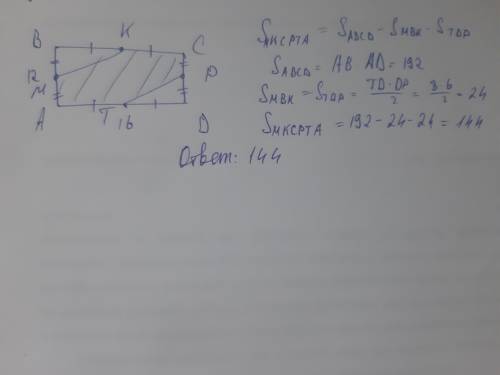 B K C
12 M P
A T 16 D
S_MKCPTA = S_ABCD - S_MBK - S_TDP
S_ABCD = AB AD = 192
S_MBK = S_TDP = TD·DP/2 = 8·6/2 = 24
S_MKCPTA = 192 - 24 - 24 = 144
Ответ: 144